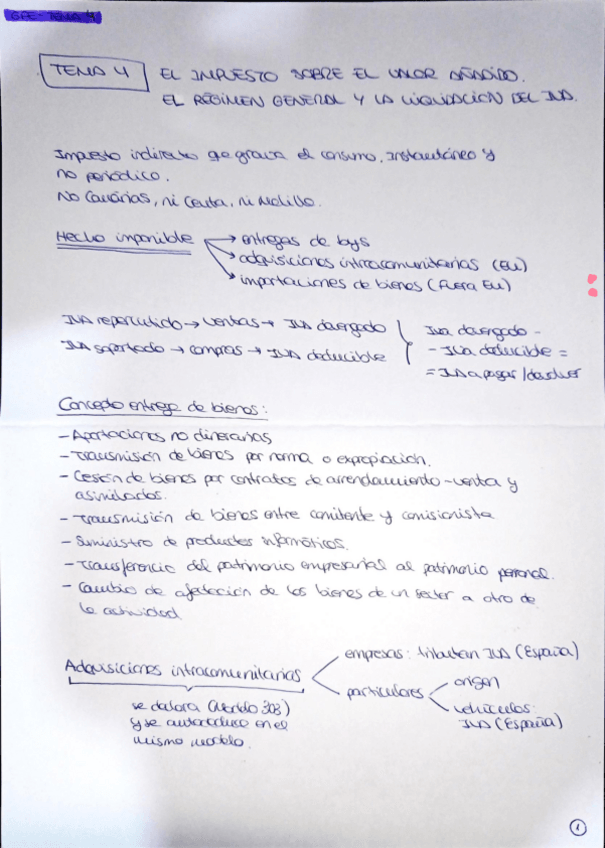 GFE - TEMA 4
TEMA 4
EL IMPUESTO SOBRE EL VALOR AÑADIDO.
EL RÉGIMEN GENERAL Y LA LIQUIDACIÓN DEL IVA.
Impuesto indirecto qe grava el consumo, instantáneo y
no periódico.
No Canarias, ni Ceuta, ni Melilla.
Hecho imponible
→ entregas de bs y s
→ adquisiciones intracomunitarias (EU)
→ importaciones de bienes (fuera EU)
IVA repercutido → ventas → IVA devengado
IVA soportado → compras → IVA deducible
IVA devengado -
- IVA deducible =
= IVA a pagar / devolver
Concepto entrega de bienes:
- Aportaciones no dinerarias
- Transmisión de bienes por norma o expropiación.
- Cesión de bienes por contratos de arrendamiento-venta y
asimilados.
- Transmisión de bienes entre comitente y comisionista
- Suministro de productos informáticos.
- Transferencia del patrimonio empresarial al patrimonio personal.
- Cambio de afectación de los bienes de un sector a otro de
la actividad
Adquisiciones intracomunitarias
empresas: tributan IVA (España)
particulares
origen
vehículos:
IVA (España)
se declara (Modelo 303)
y se autodeduce en el
mismo modelo.
1